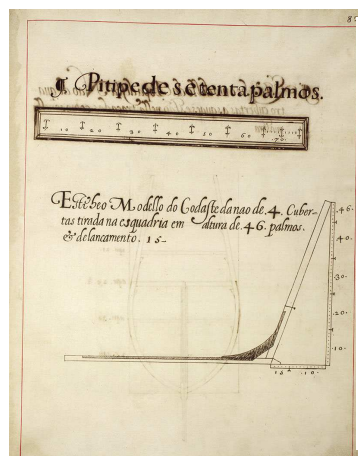 ¶ Pitipe de setenta palmos.
10 20 30 40 10 60 70
Este he o Modello do Codaste da nao de .4. Cuber-
tas tirada na esquadria em altura de .46. palmos.
& de lancamento. 15-
.46.
.40.
.30.
.20.
.10.
15 .10.